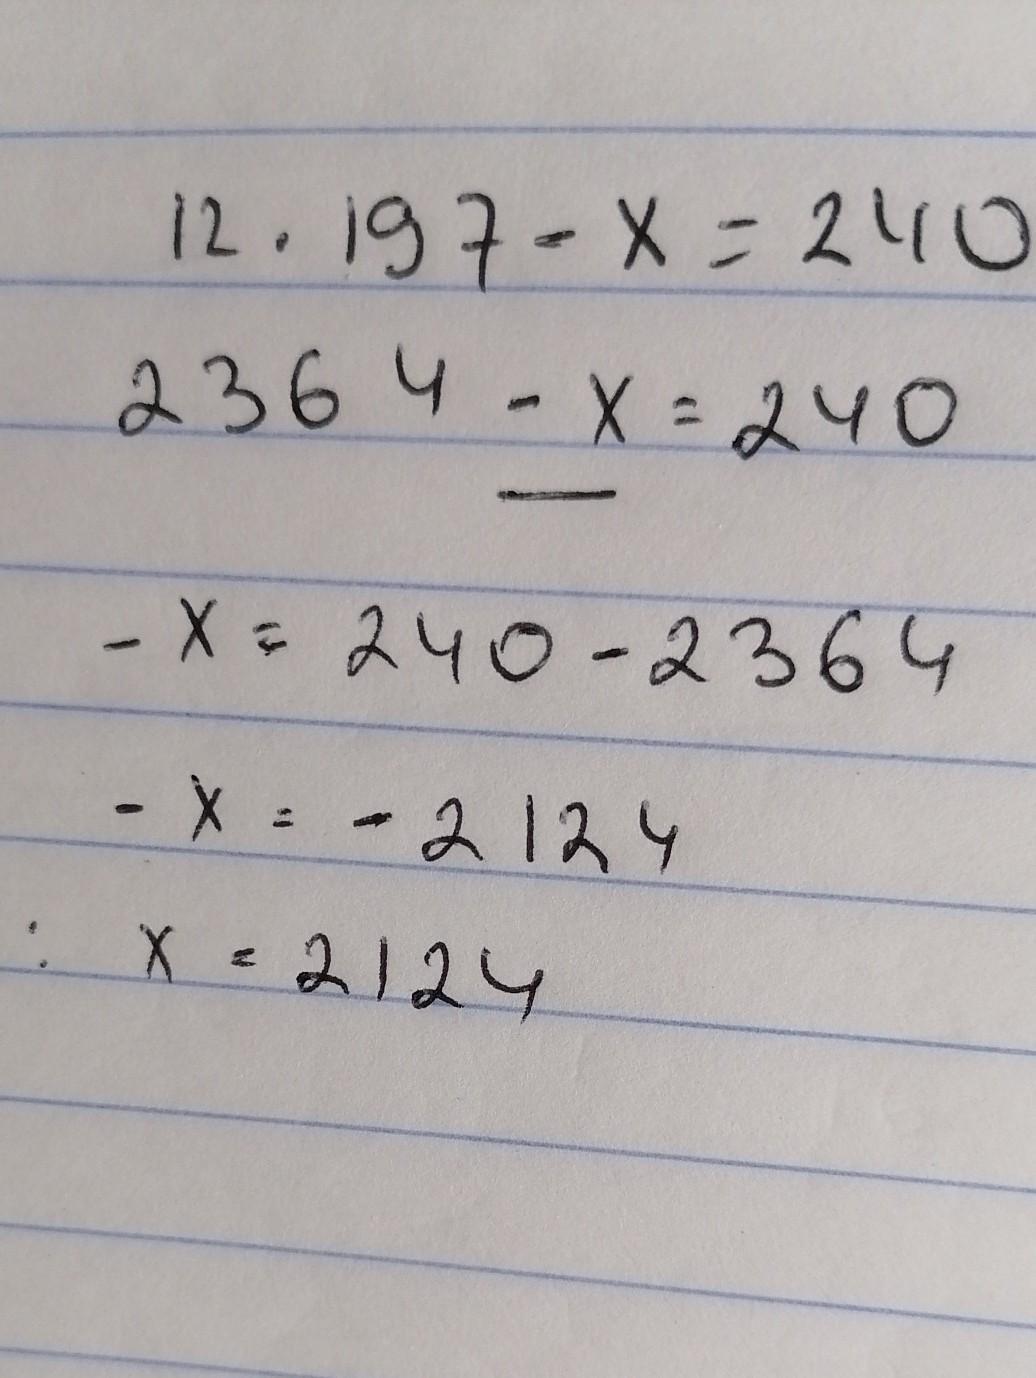 12 . 197 - x = 240
2364 - x = 240
- x = 240 - 2364
- x = - 2124
: x = 2124